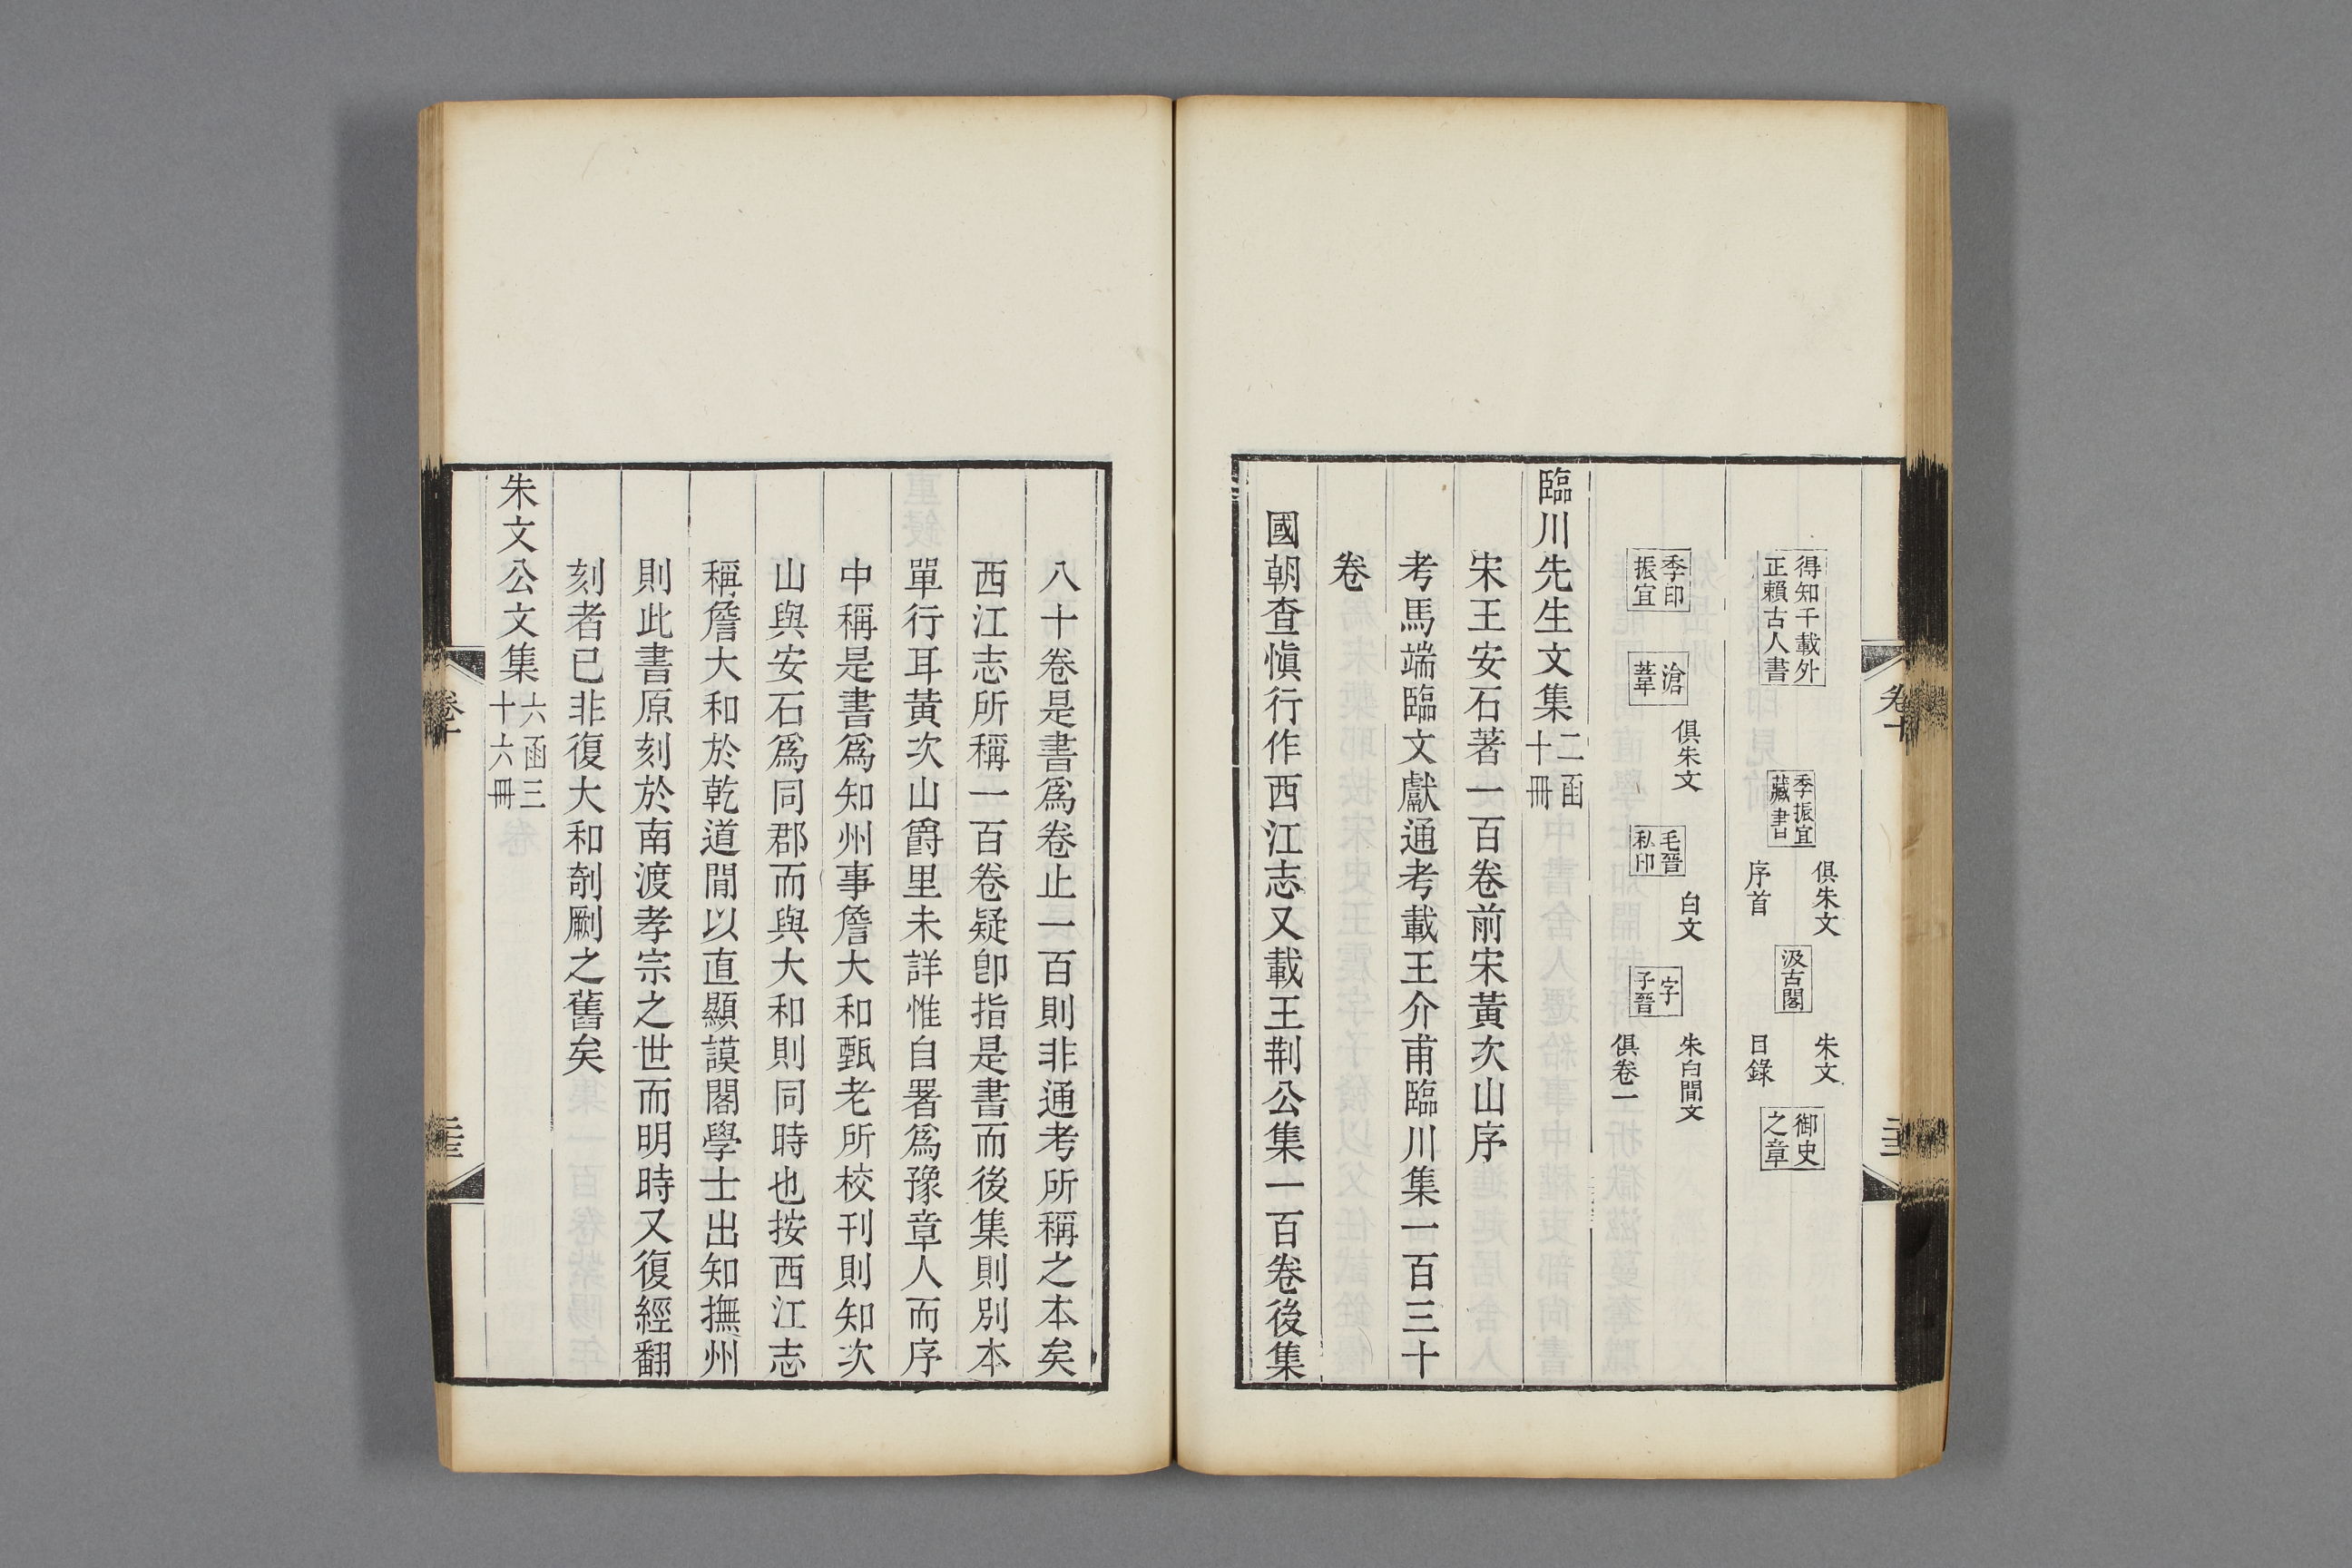 得知千載外
正賴古人書
季振宜
藏書
俱朱文
序首
汲古閣
朱文
目錄
御史
之章
季印
振宜
滄
葦
俱朱文
毛晉
私印
白文
字
子晉
朱白間文
俱卷一
臨川先生文集二函
十冊
宋王安石著一百卷前宋黃次山序
考馬端臨文獻通考載王介甫臨川集一百三十
卷
國朝查慎行作西江志又載王荆公集一百卷後集
八十卷是書為卷止一百則非通考所稱之本矣
西江志所稱一百卷疑卽指是書而後集則別本
單行耳黃次山爵里未詳惟自署為豫章人而序
中稱是書為知州事詹大和甄老所校刊則知次
山與安石為同郡而與大和則同時也按西江志
稱詹大和於乾道間以直顯謨閣學士出知撫州
則此書原刻於南渡孝宗之世而明時又復經翻
刻者已非復大和剞劂之舊矣
朱文公文集六函三
十六冊
卷十